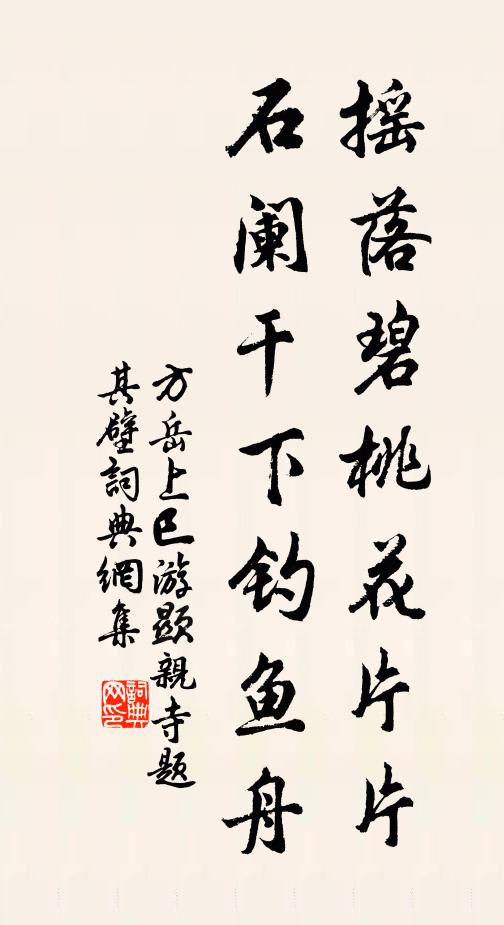 摇落碧桃花片片
石阑干下钓鱼舟
方岳上巳游顯親寺題
其壁詞典網集
詞典
网印